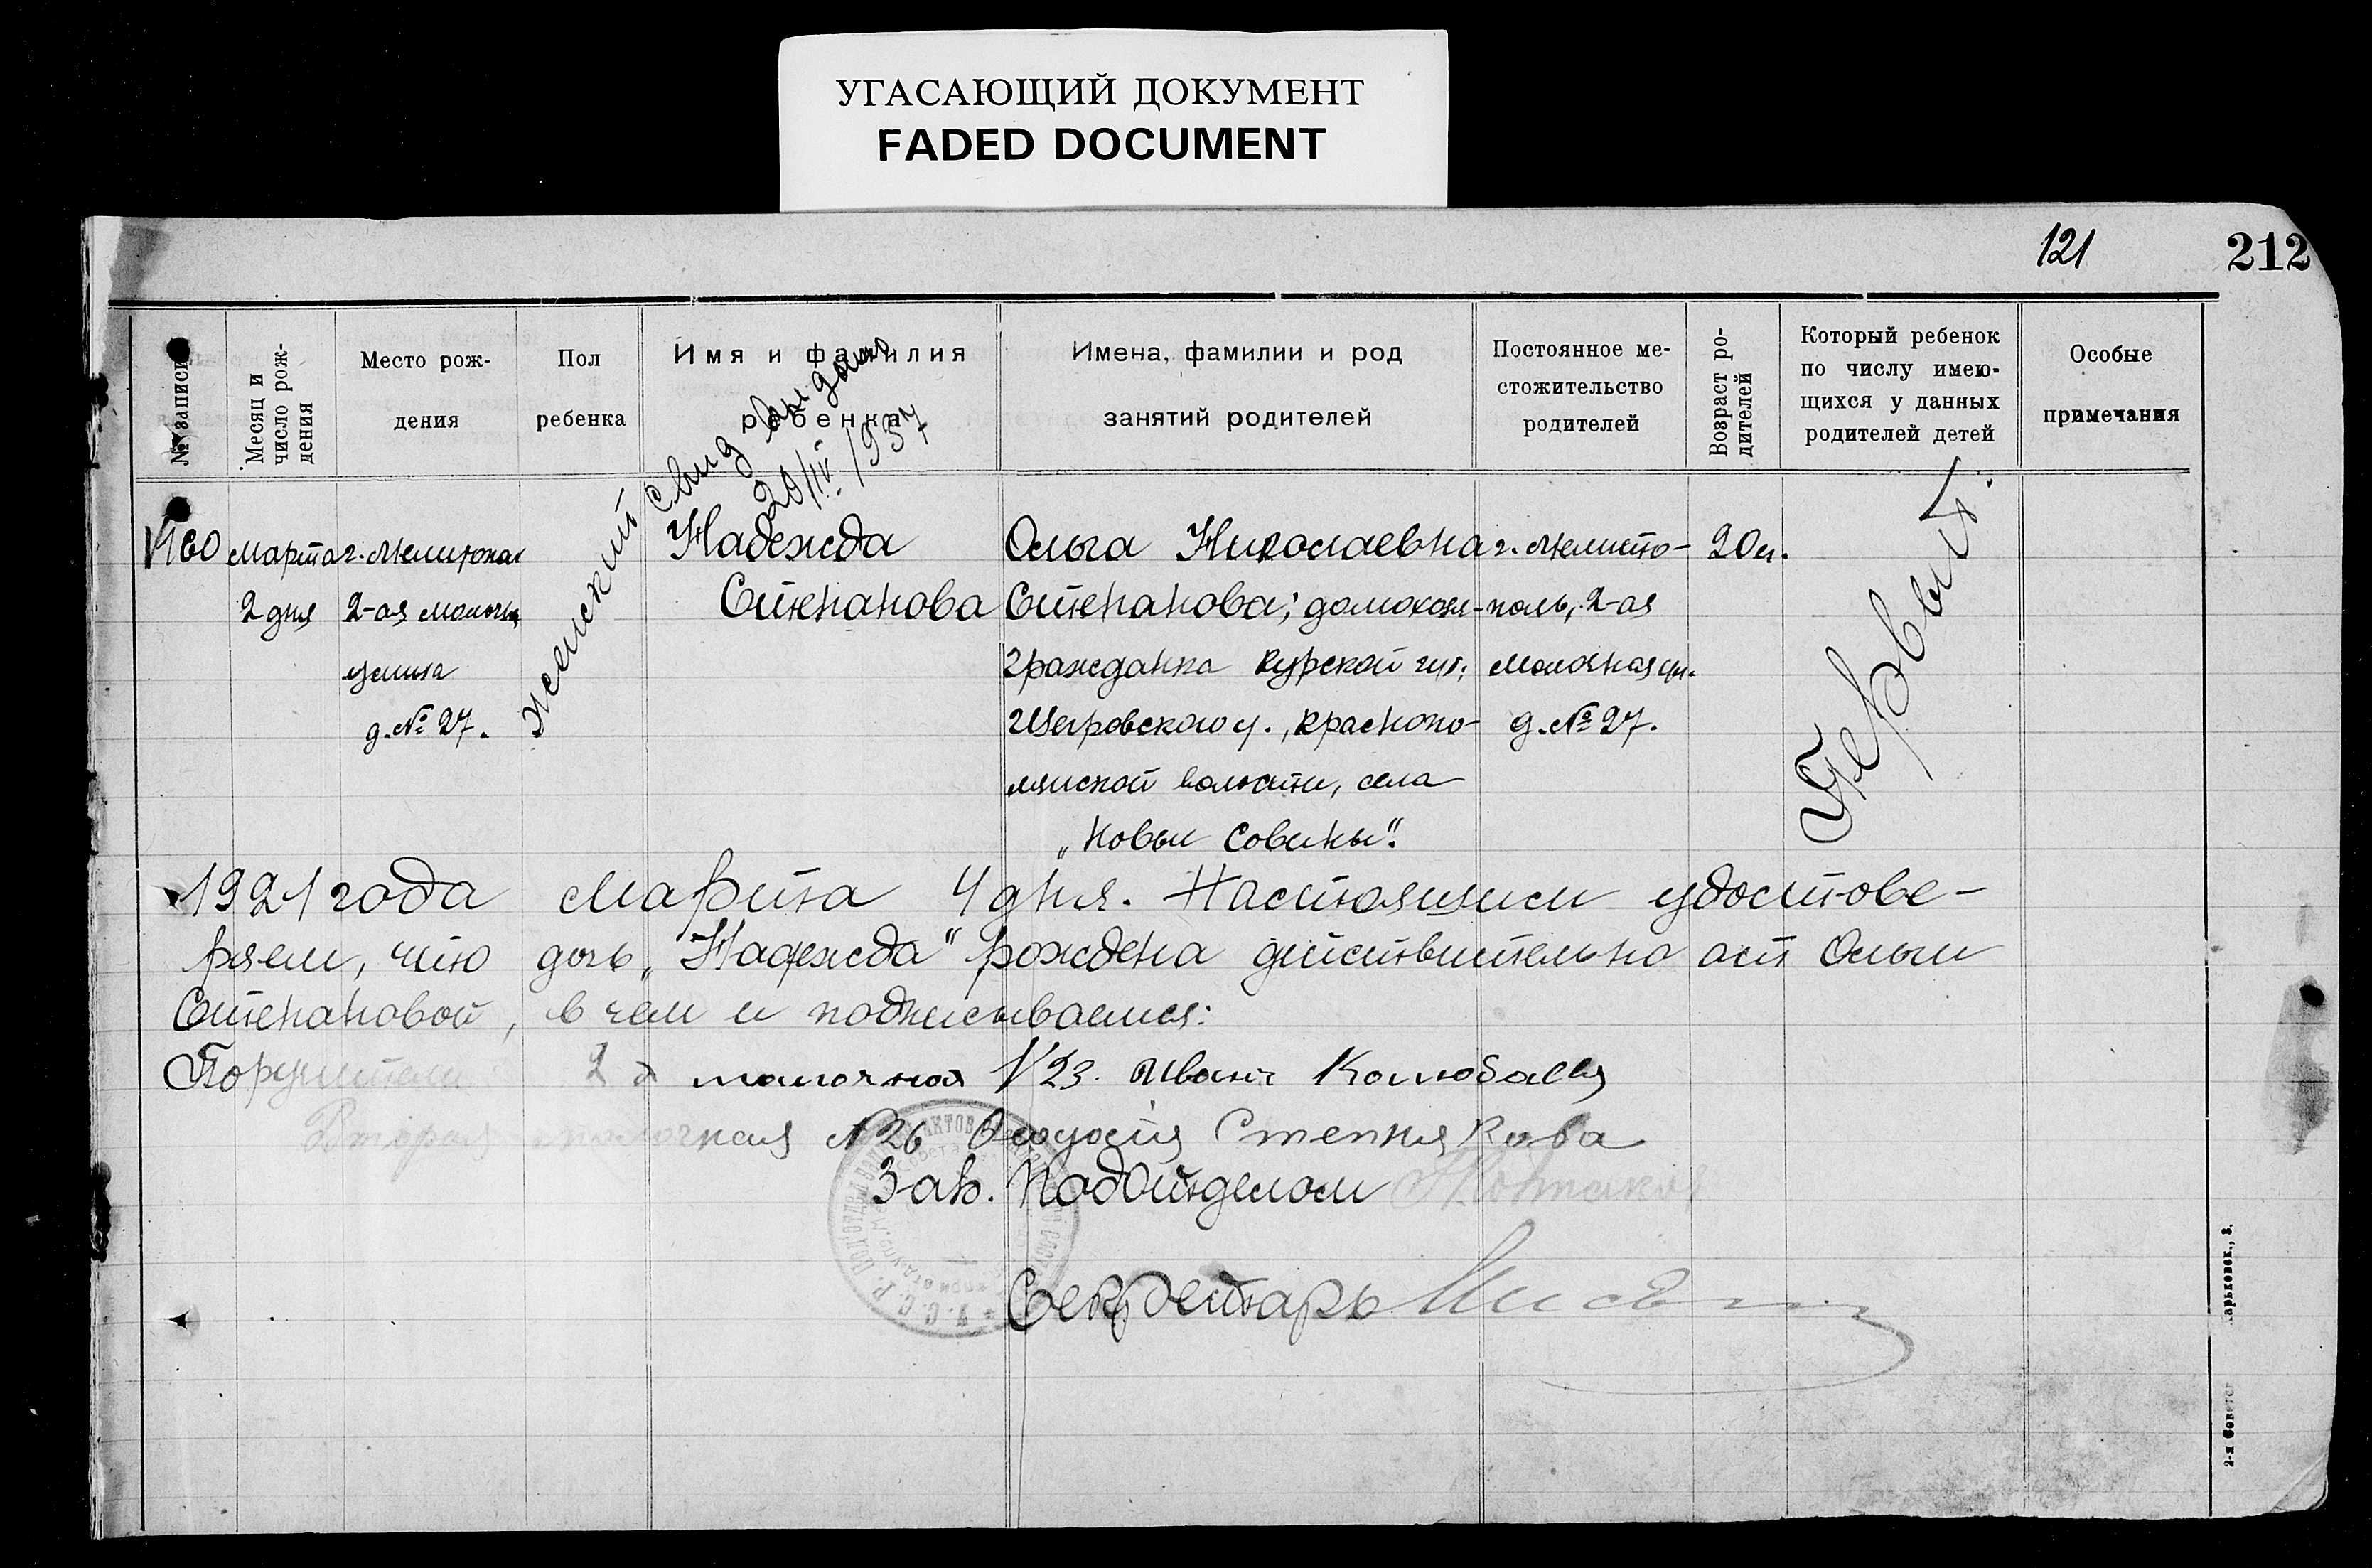 УГАСАЮЩИЙ ДОКУМЕНТ
FADED DOCUMENT
121
212
№ записи
Месяц и число рож-
дения
Место рож-
дения
Пол
ребенка
Имя и фамилия
ребенка
Имена, фамилии и род
занятий родителей
Постоянное ме-
стожительство
родителей
Возраст ро-
дителей
Который ребенок
по числу имею-
щихся у данных
родителей детей
Особые
примечания
Свид выдано
20/IV 1937
№60
марта
2 дня
г. Мелитополь
2-ая Молочн
улица
д. № 27.
женский
Надежда
Степанова
Ольга Николаевна
Степанова; домохоз.
гражданка Курской губ.,
Щигровского у., Краснопо-
лянской волости, села
„Новые Савины".
г. Мелито-
поль, 2-ая
Молочная ул.
д. № 27.
20 л.
Первый.
1921 года Марта 4 дня. Настоящим удостове-
ряем, что дочь „Надежда" рождена действительно от Ольги
Степановой, в чем и подписываемся:
Поручители 2 я молочная №23. Иван
Вторая молочная №26 Феодосия
Зав. Подотделом
Секретарь
У.С.С.Р.